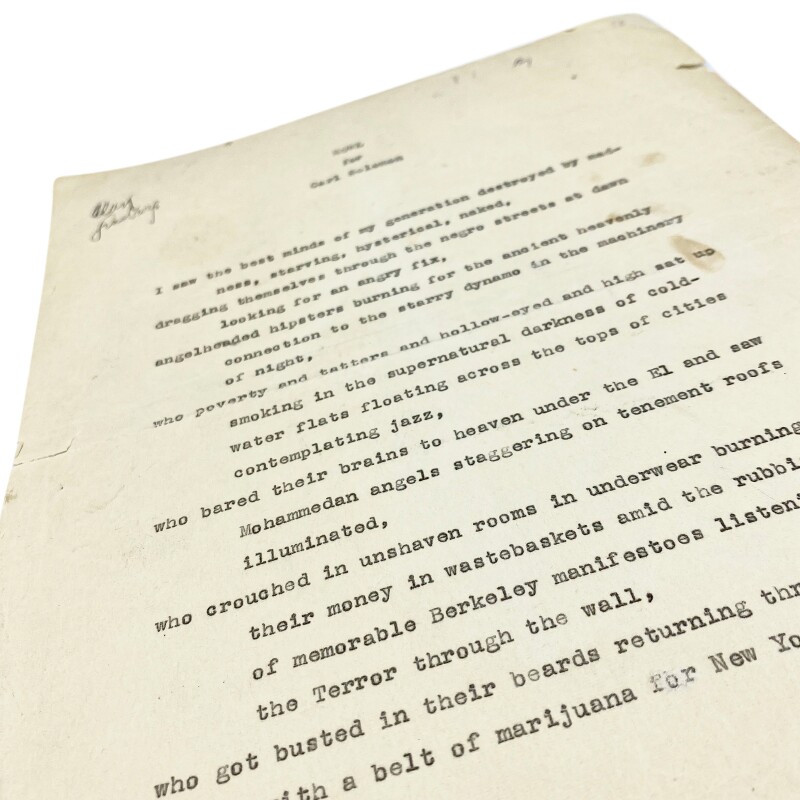 HOWL
for
Carl Solomon
Allen
Ginsberg
I saw the best minds of my generation destroyed by mad-
ness, starving, hysterical, naked,
dragging themselves through the negro streets at dawn
looking for an angry fix,
angelheaded hipsters burning for the ancient heavenly
connection to the starry dynamo in the machinery
of night,
who poverty and tatters and hollow-eyed and high sat up
smoking in the supernatural darkness of cold-
water flats floating across the tops of cities
contemplating jazz,
who bared their brains to heaven under the El and saw
Mohammedan angels staggering on tenement roofs
illuminated,
who crouched in unshaven rooms in underwear burning
their money in wastebaskets amid the rubbi
of memorable Berkeley manifestoes listeni
the Terror through the wall,
who got busted in their beards returning thr
ith a belt of marijuana for New Yo